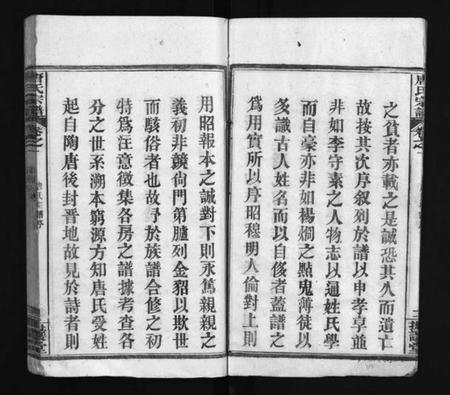 之貧者亦載之是誠恐其久而遺亡
故按其次序叙列於譜以申孝享並
非如李守素之人物志以逼姓氏學
而自豪亦非如楊炯之點鬼薄徒以
多識古人姓名而以自侈者蓋譜之
爲用實所以序昭穆明人倫對上則
用昭報本之誠對下則永篤親親之
義初非競尙門第臚列金貂以欺世
而駭俗者也故予於族譜合修之初
特爲汪意徵集各房之譜據考查各
分之世系溯本窮源方知唐氏受姓
起自陶唐後封晋地故見於詩者則
唐氏宗譜
卷之一